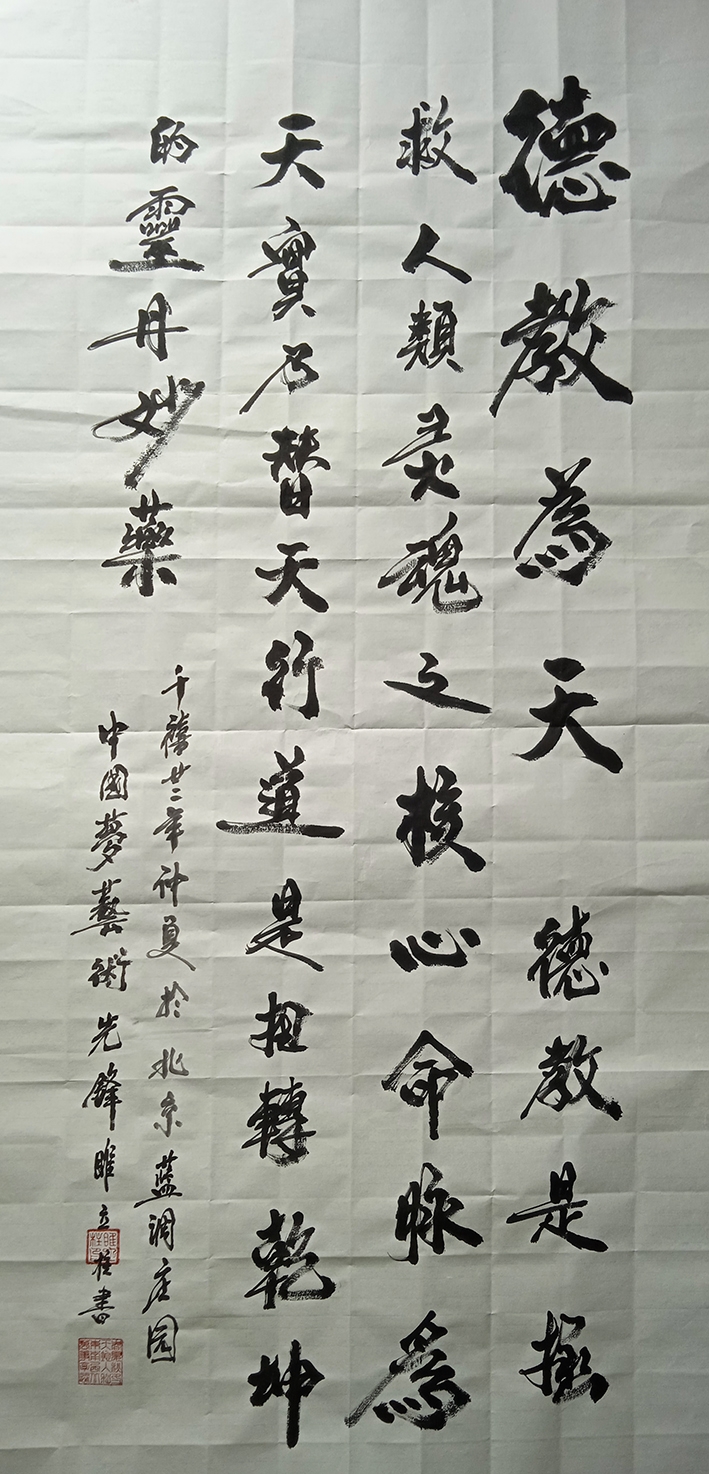 德教為天 德教是拯
救人類灵魂之核心命脉為
天實乃替天行道是扭轉乾坤
的靈丹妙藥
千禧廿二年仲夏於北京藍調庄园
中國夢藝術先鋒睢立柱書